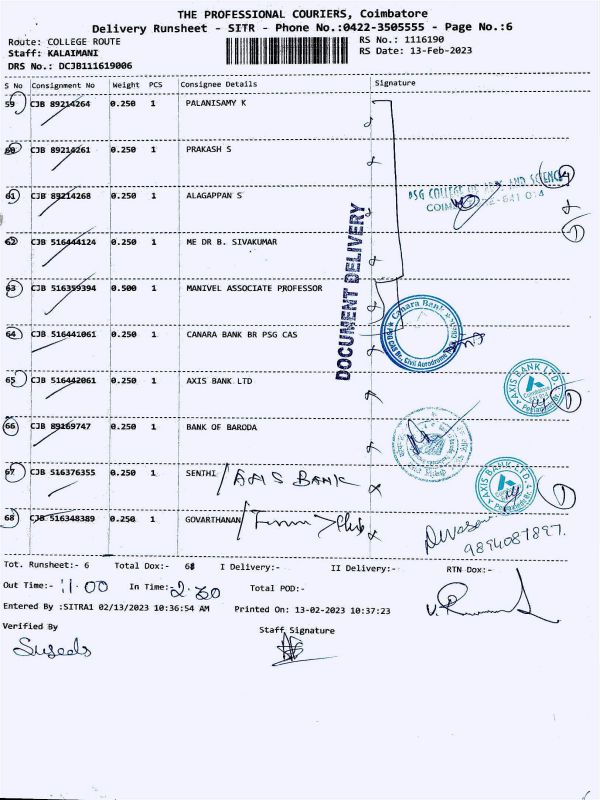 THE PROFESSIONAL COURIERS, Coimbatore
Delivery Runsheet - SITR - Phone No.:0422-3505555 - Page No.:6
Route: COLLEGE ROUTE
RS No.: 1116190
Staff: KALAIMANI
RS Date: 13-Feb-2023
DRS No.: DCJB111619006
S No Consignment No Weight PCS Consignee Details Signature
59 CJB 89214264 0.250 1 PALANISAMY K
60 CJB 89214261 0.250 1 PRAKASH S
61 CJB 89214268 0.250 1 ALAGAPPAN S
PSG COLLEGE OF ARTS AND SCIENCE
COIMBATORE-641 014
62 CJB 516444124 0.250 1 ME DR B. SIVAKUMAR
DOCUMENT DELIVERY
63 CJB 516359394 0.500 1 MANIVEL ASSOCIATE PROFESSOR
Canara Bank
PSG CAS Br, Civil Aerodrome
64 CJB 516441061 0.250 1 CANARA BANK BR PSG CAS
65 CJB 516442061 0.250 1 AXIS BANK LTD
AXIS BANK LTD.
66 CJB 89269747 0.250 1 BANK OF BARODA
67 CJB 516376355 0.250 1 SENTHI / AXIS BANK
AXIS BANK LTD.
68 CJB 516348389 0.250 1 GOVARTHANAN
9894087897.
Tot. Runsheet:- 6 Total Dox:- 68 I Delivery:- II Delivery:- RTN Dox:-
Out Time:- 11.00 In Time:- 2.30 Total POD:-
Entered By :SITRA1 02/13/2023 10:36:54 AM Printed On: 13-02-2023 10:37:23
Verified By
Staff Signature